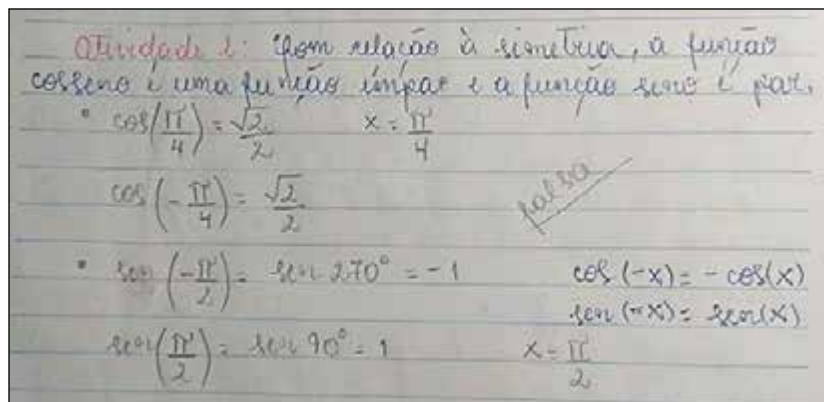 Atividade 2: "Com relação à simetria, a função
cosseno é uma função ímpar e a função seno é par.
• cos(π/4) = √2/2 x = π/4
cos(-π/4) = √2/2
falsa
• sen(-π/2) = sen 270° = -1 cos(-x) = -cos(x)
sen(-x) = sen(x)
sen(π/2) = sen 90° = 1 x = π/2